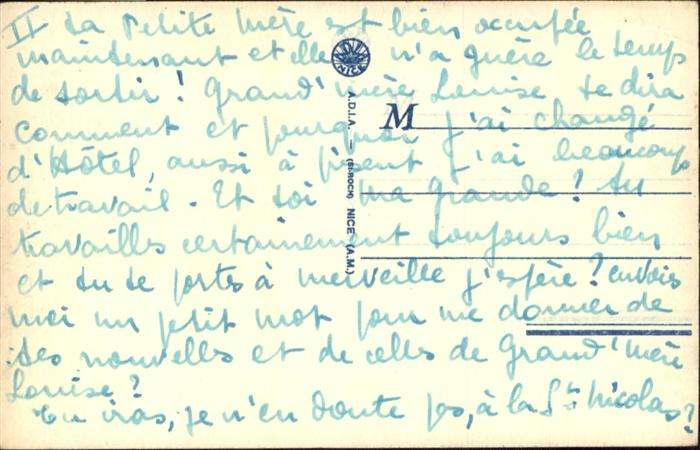 II ta Petite mère est bien occupée
maintenant et elle n'a guère le temps
de sortir ! Grand'mère Louise te dira
comment et pourquoi j'ai changé
d'Hôtel, aussi à présent j'ai beaucoup
de travail. Et toi ma grande ? tu
travailles certainement toujours bien
et tu te portes à merveille j'espère ? envois
moi un petit mot pour me donner de
tes nouvelles et de celles de Grand'mère
Louise ?
Tu iras, je n'en doute pas, à la St Nicolas ?
NICE
A.D.I.A. — (St-ROCH) NICE (A.M.)
M